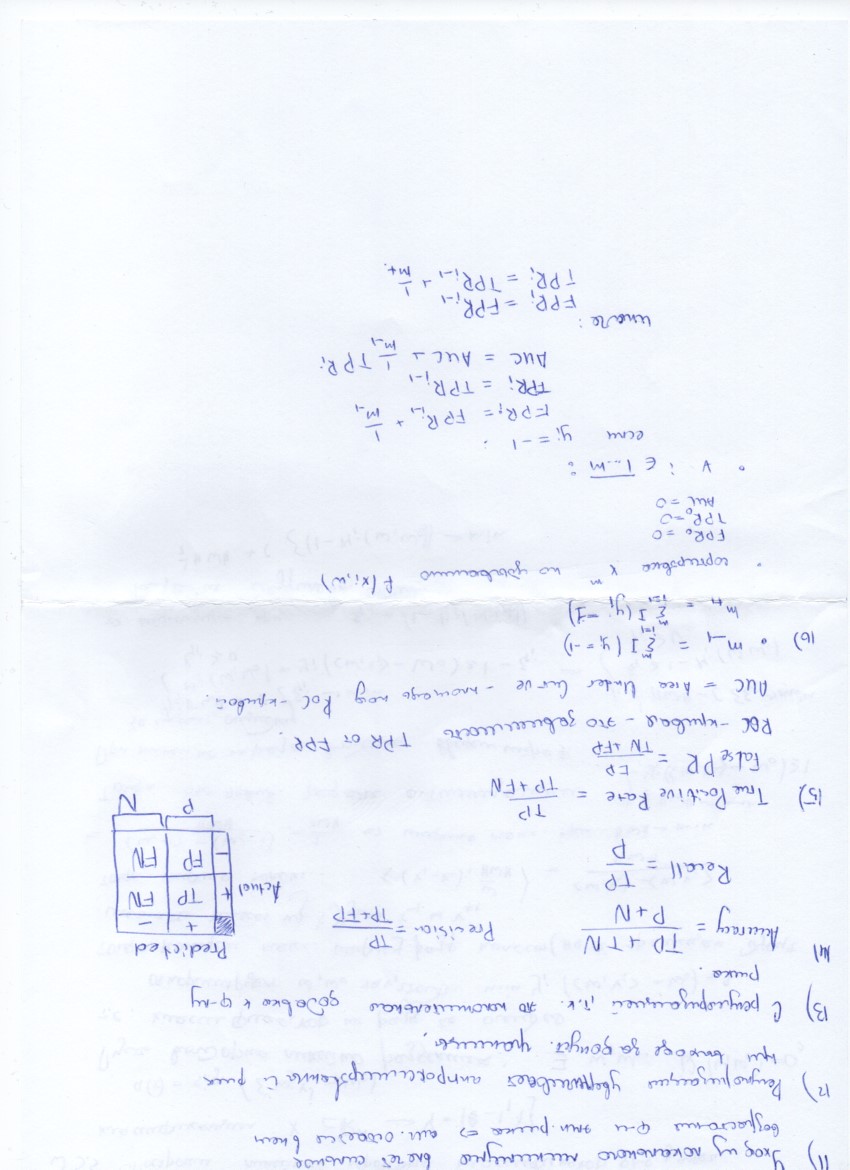 11) Уход из локального минимума влечёт сильное
возрастания ф-и эмп. риска => алг. остается в нем
12) Регуляризация увеличивает аппроксимированный риск
при выходе за допуст. границы.
13) С регуляризацией, т.к. это положительная добавка к ф-лу
риска.
14) Accuracy = (TP + TN) / (P + N)
Precision = TP / (TP + FP)
Recall = TP / P
Predicted
+ −
Actual + TP FN
− FP FN
P N
15) True Positive Rate = TP / (TP + FN)
False PR = FP / (TN + FP)
ROC - кривая - это зависимость TPR от FPR.
AUC = Area Under Curve - площадь под ROC - кривой.
16) • m₋₁ = Σᵢ₌₁ᵐ I (yᵢ = -1)
m₊₁ = Σᵢ₌₁ᵐ I (yᵢ = 1)
• сортировка xᵐ по убыванию f(xᵢ, w)
FPR₀ = 0
TPR₀ = 0
AUC = 0
• ∀ i ∈ 1...m :
если yᵢ = -1 :
FPRᵢ = FPRᵢ₋₁ + 1/m₋₁
TPRᵢ = TPRᵢ₋₁
AUC = AUC + 1/m₋₁ TPRᵢ
иначе:
FPRᵢ = FPRᵢ₋₁
TPRᵢ = TPRᵢ₋₁ + 1/m₊.